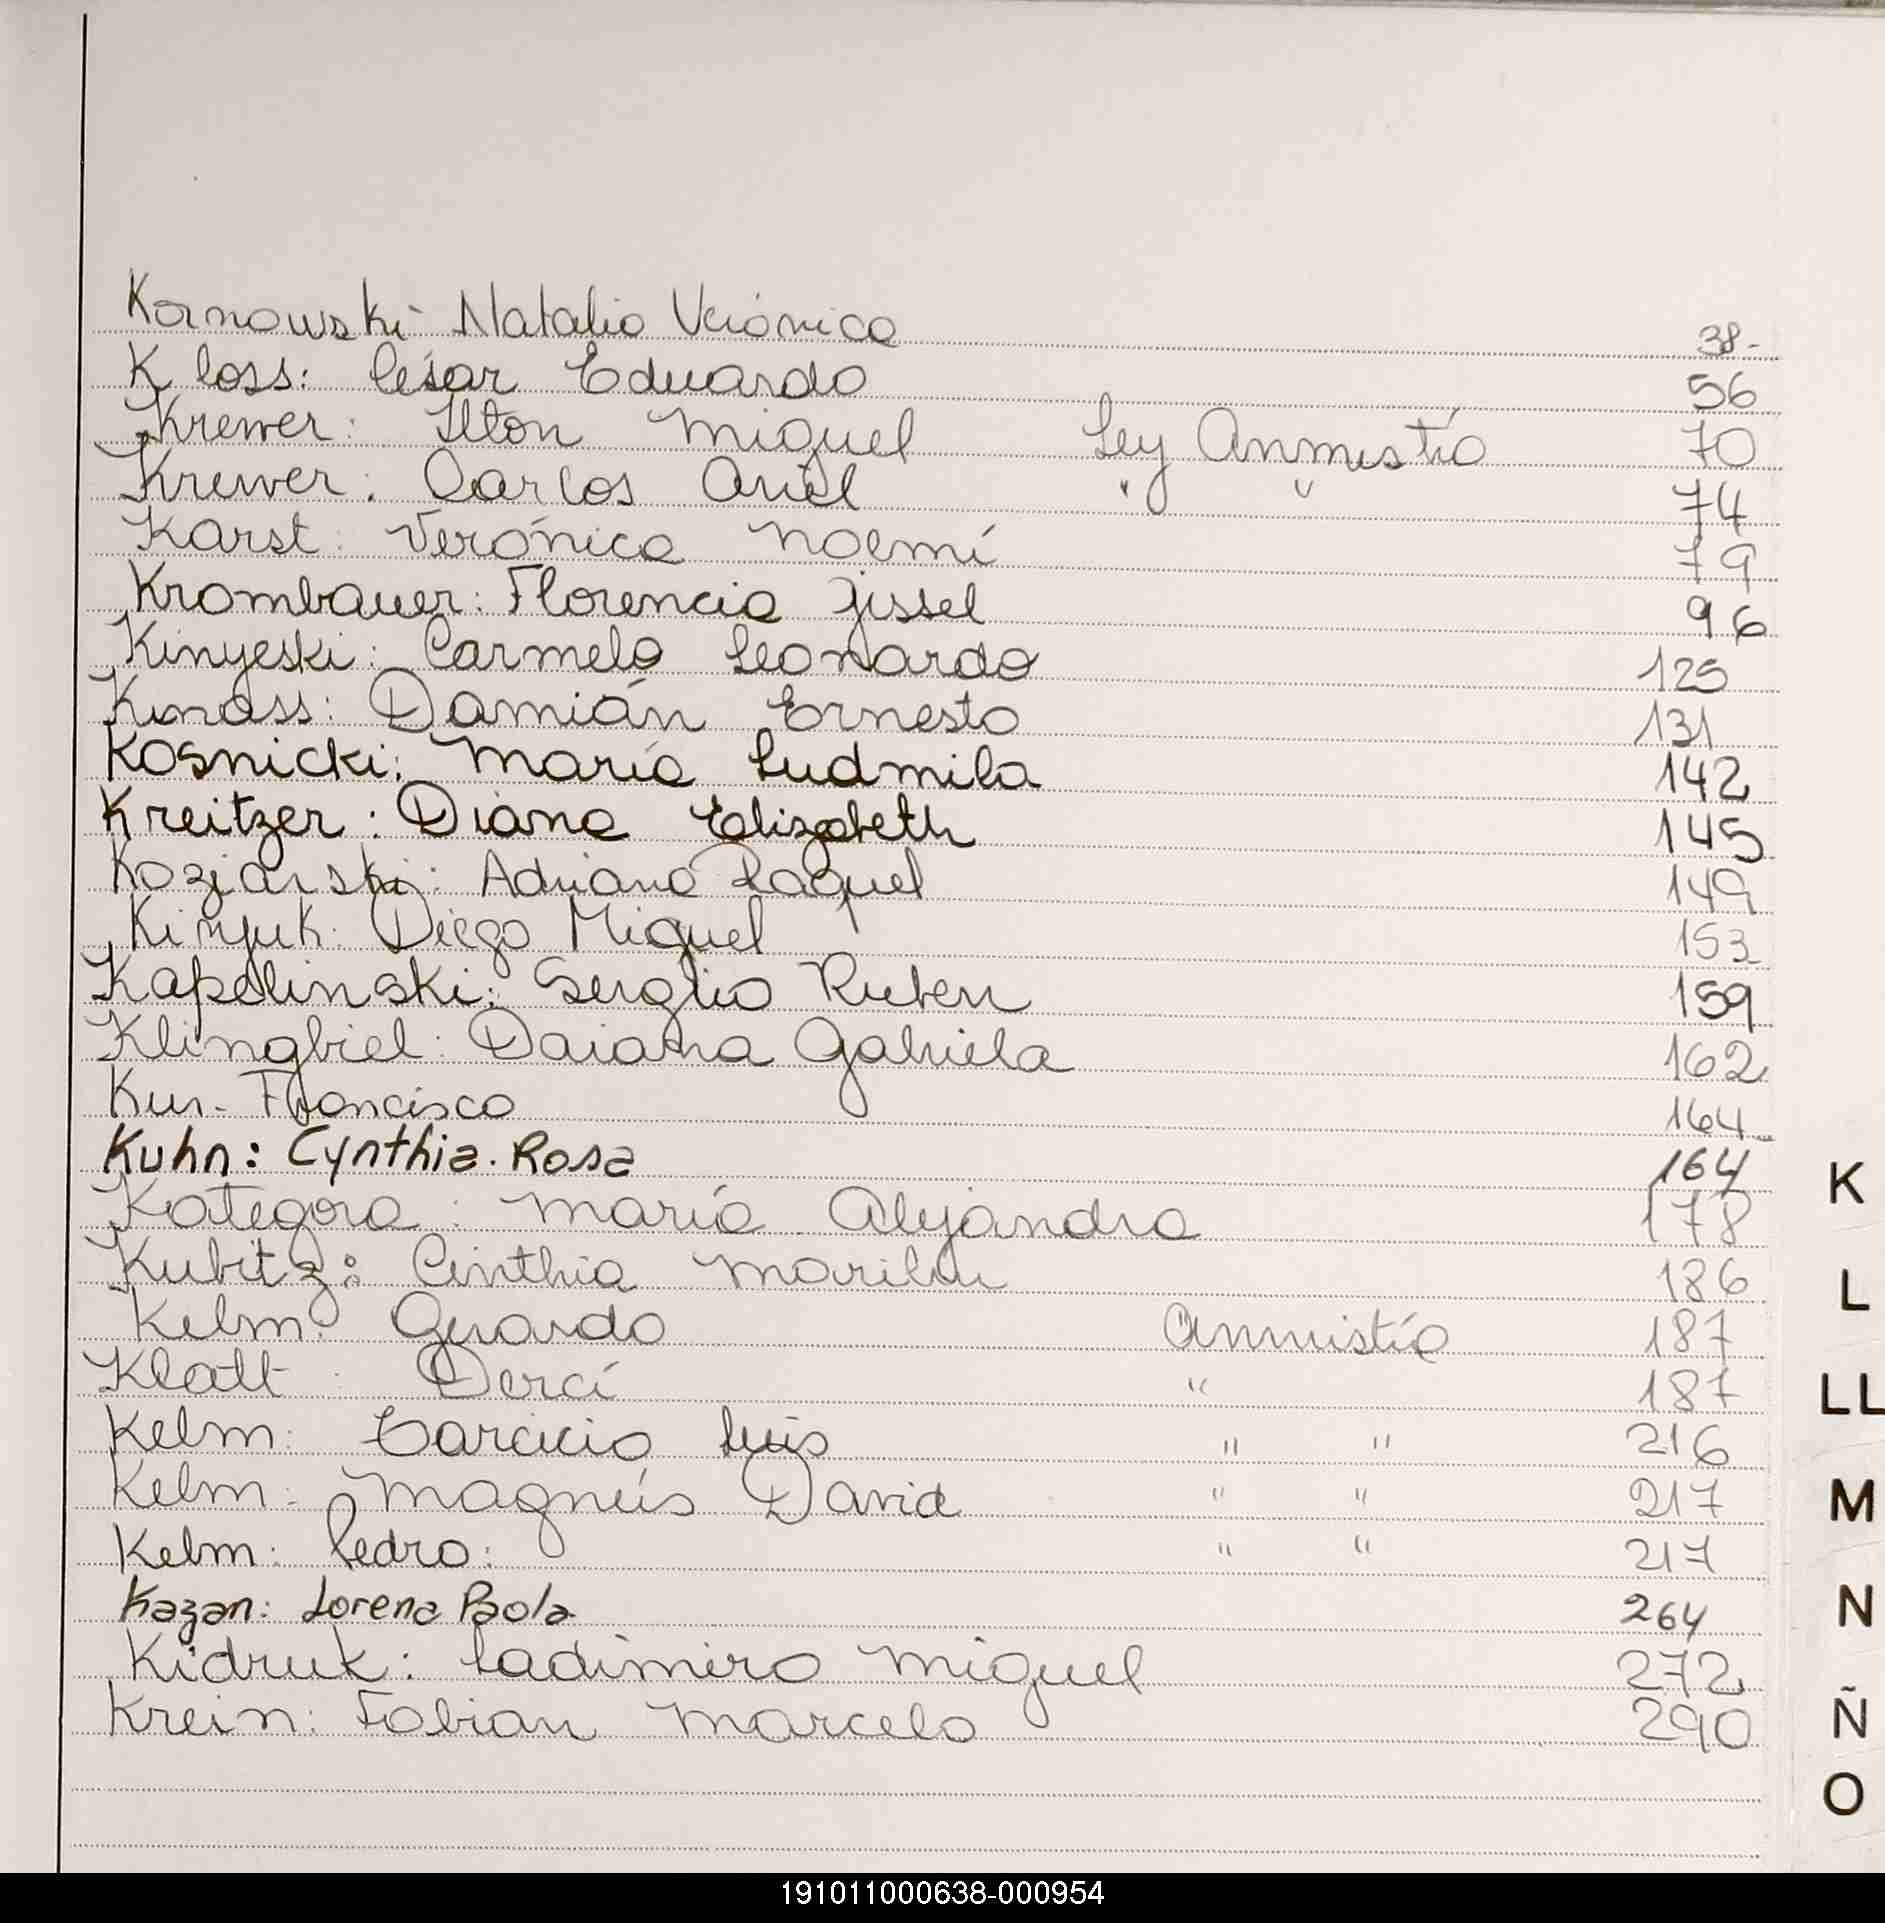 Kornowski Natalia Verónica 38-
Kloss: César Eduardo 56
Krewer: Ilton Miguel Ley Anmistía 70
Krewer: Carlos Ariel " " 74
Karst: Verónica Noemí 79
Krombauer: Florencia Jissel 96
Kinyeski: Carmelo Leonardo 125
Knass: Damián Ernesto 131
Kosnicki: María Ludmila 142
Kreitzer: Diana Elizabeth 145
Koziarski: Adriana Raquel 149
Kinyuk: Diego Miguel 153
Kapelinski: Sergio Ruben 159
Klingbiel: Daiana Gabriela 162
Kur- Francisco 164
Kuhn: Cynthia. Rosa 164
Kategora: María Alejandra 178
Kubitz: Cinthia Marilu 186
Kelm: Gerardo Anmistía 187
Klatt: Derci " 187
Kelm: Tarcicio Luis " " 216
Kelm: Magnús David " " 217
Kelm: Pedro: " " 217
Kazan: Lorena Paola 264
Kidruk: Ladimiro Miguel 272
Krein: Fabian Marcelo 290
K
L
LL
M
N
Ñ
O
191011000638-000954